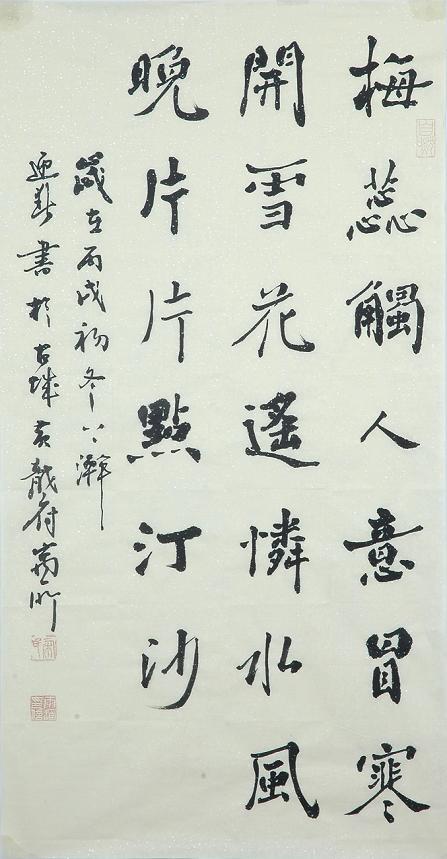 梅蕊觸人意冒寒
開雪花遙憐水風
晚片片點汀沙
歲在丙戌初冬澣
迎春書於古城黃龍府寓所